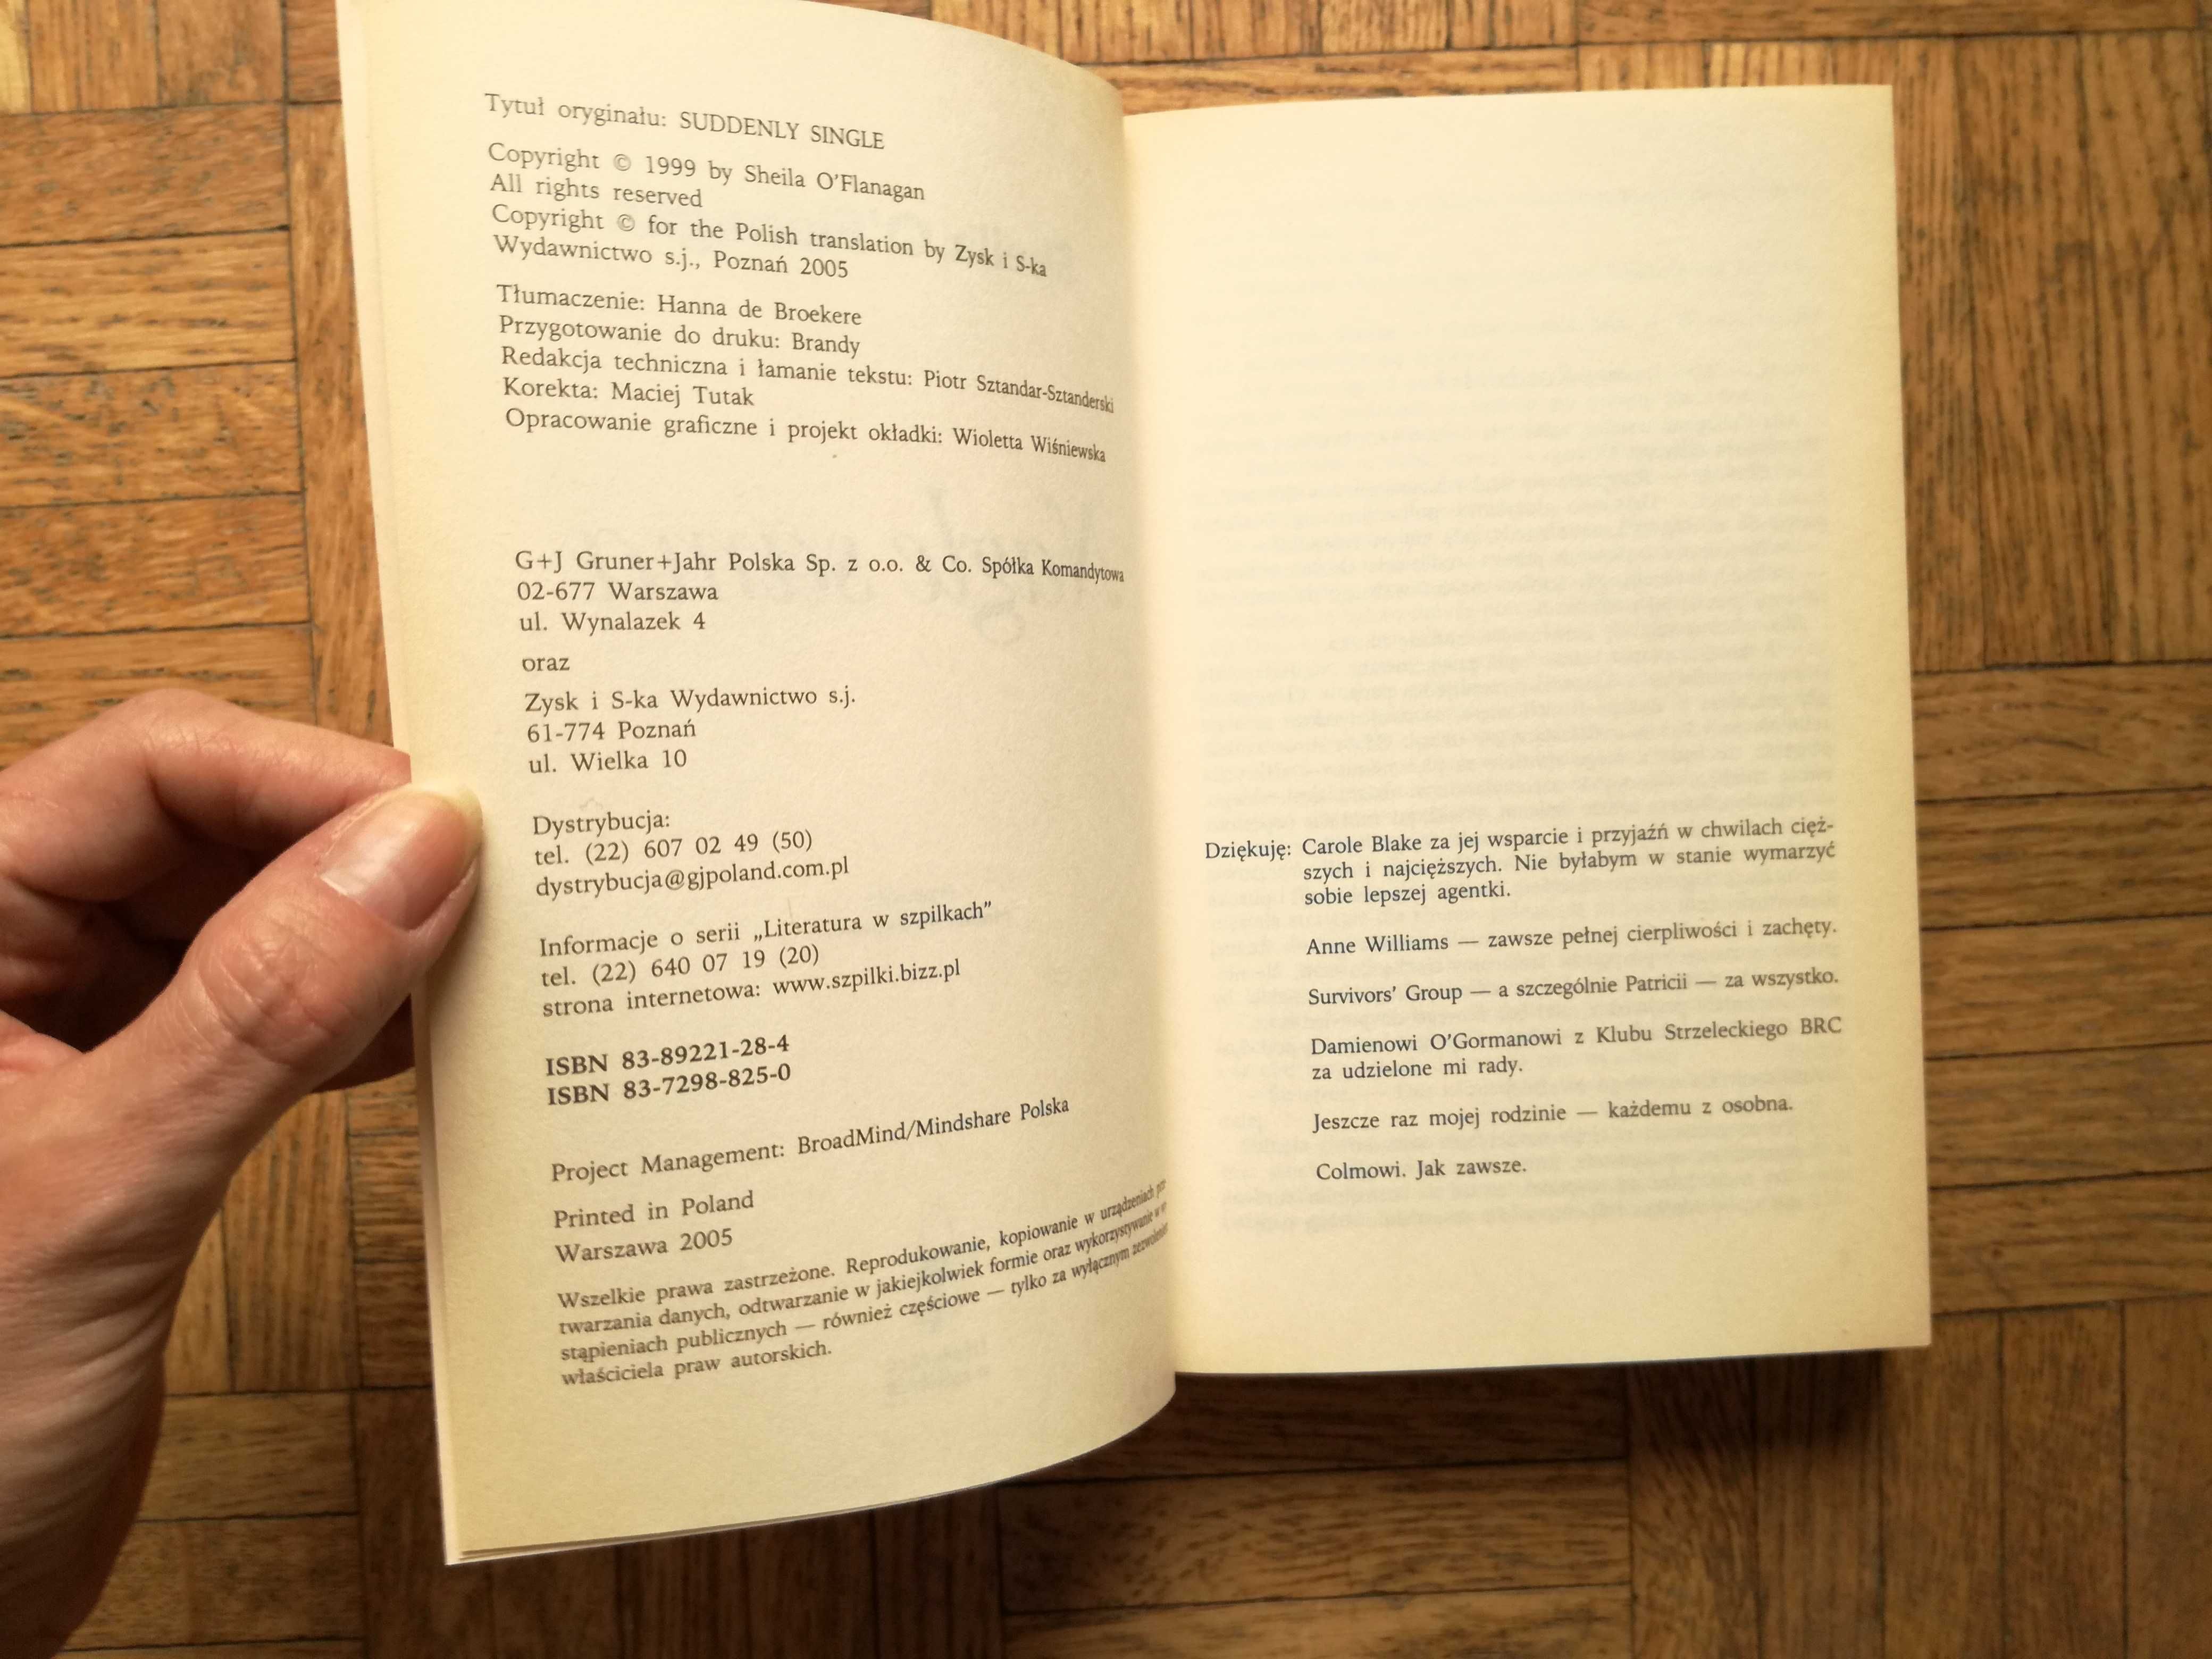 Tytuł oryginału: SUDDENLY SINGLE
Copyright © 1999 by Sheila O'Flanagan
All rights reserved
Copyright © for the Polish translation by Zysk i S-ka
Wydawnictwo s.j., Poznań 2005
Tłumaczenie: Hanna de Broekere
Przygotowanie do druku: Brandy
Redakcja techniczna i łamanie tekstu: Piotr Sztandar-Sztanderski
Korekta: Maciej Tutak
Opracowanie graficzne i projekt okładki: Wioletta Wiśniewska
G+J Gruner+Jahr Polska Sp. z o.o. & Co. Spółka Komandytowa
02-677 Warszawa
ul. Wynalazek 4
oraz
Zysk i S-ka Wydawnictwo s.j.
61-774 Poznań
ul. Wielka 10
Dystrybucja:
tel. (22) 607 02 49 (50)
dystrybucja@gjpoland.com.pl
Informacje o serii „Literatura w szpilkach”
tel. (22) 640 07 19 (20)
strona internetowa: www.szpilki.bizz.pl
ISBN 83-89221-28-4
ISBN 83-7298-825-0
Project Management: BroadMind/Mindshare Polska
Printed in Poland
Warszawa 2005
Wszelkie prawa zastrzeżone. Reprodukowanie, kopiowanie w urządzeniach
twarzania danych, odtwarzanie w jakiejkolwiek formie oraz wykorzystywanie w
stąpieniach publicznych — również częściowe — tylko za wyłącznym
właściciela praw autorskich.
Dziękuję: Carole Blake za jej wsparcie i przyjaźń w chwilach cięż-
szych i najcięższych. Nie byłabym w stanie wymarzyć
sobie lepszej agentki.
Anne Williams — zawsze pełnej cierpliwości i zachęty.
Survivors' Group — a szczególnie Patricii — za wszystko.
Damienowi O'Gormanowi z Klubu Strzeleckiego BRC
za udzielone mi rady.
Jeszcze raz mojej rodzinie — każdemu z osobna.
Colmowi. Jak zawsze.